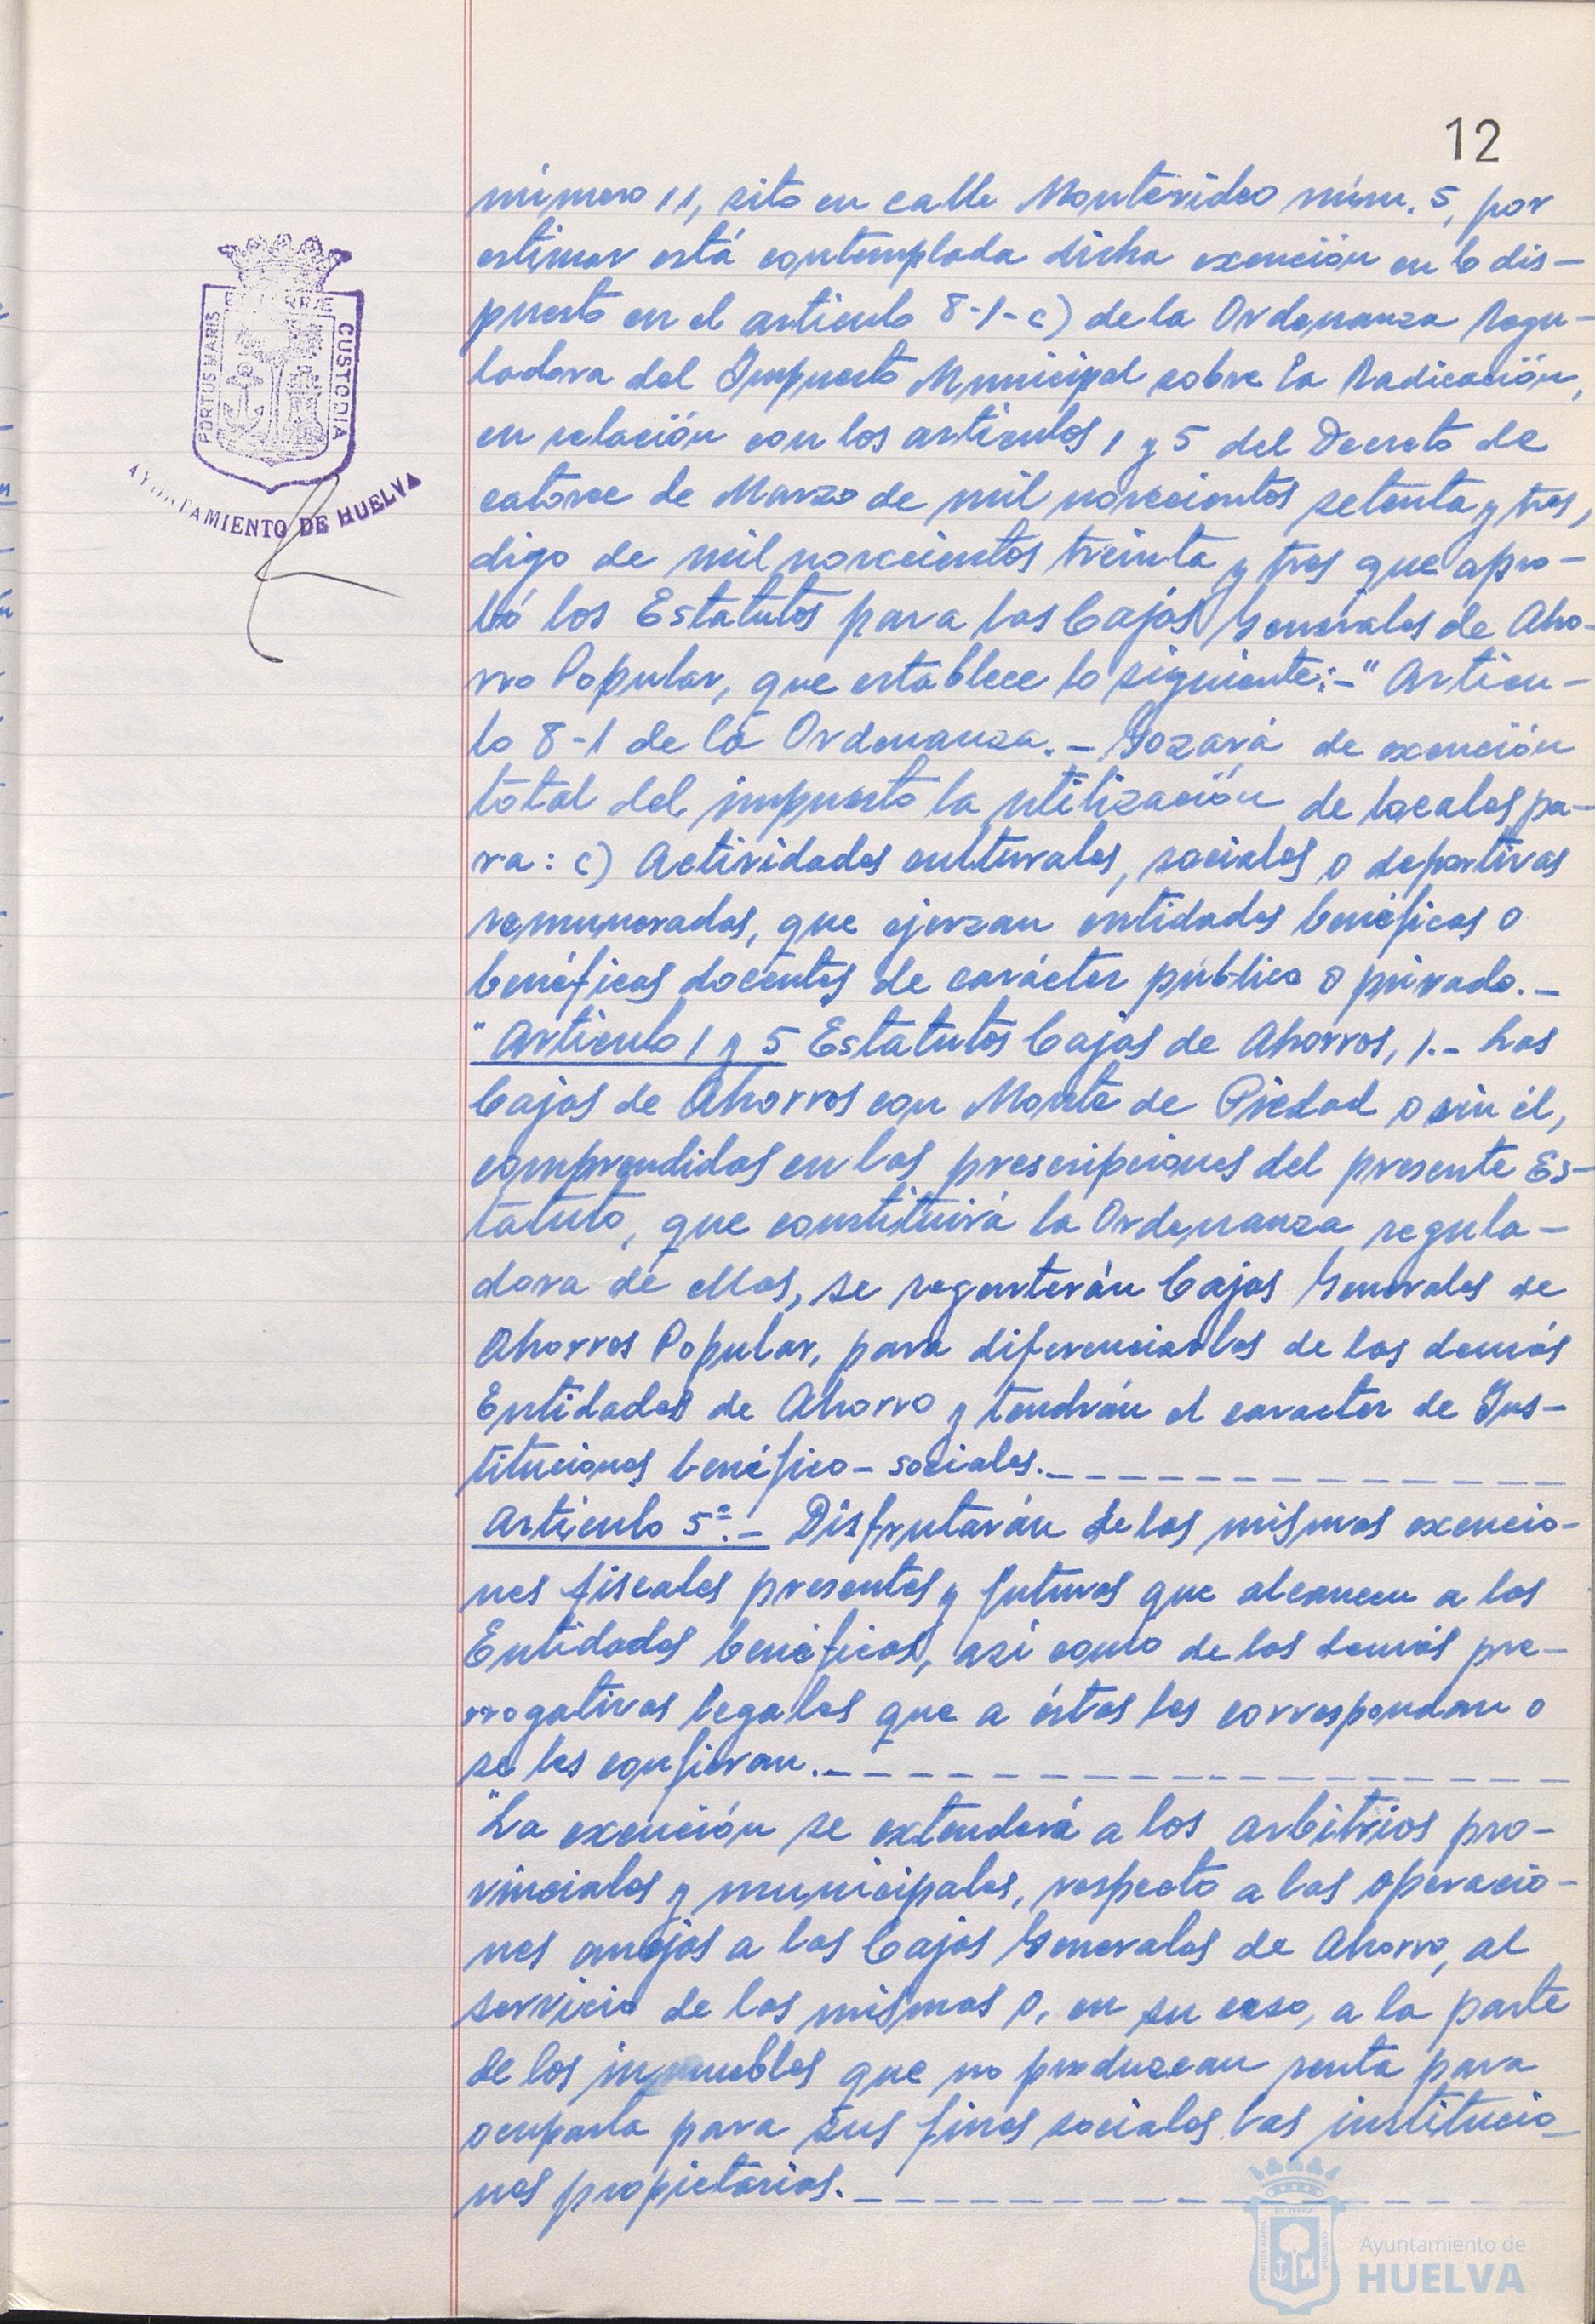 12
número 11, sito en calle Montevideo núm. 5, por
estimar está contemplada dicha exención en lo dis-
puesto en el artículo 8-1-c) de la Ordenanza Regu-
ladora del Impuesto Municipal sobre la Radicación,
en relación con los artículos 1 y 5 del Decreto de
catorce de Marzo de mil novecientos setenta y tres,
digo de mil novecientos treinta y tres que apro-
bó los Estatutos para las Cajas Generales de Aho-
rro Popular, que establece lo siguiente:-" Artícu-
lo 8-1 de la Ordenanza.- Gozará de exención
total del impuesto la utilización de locales pa-
ra: c) Actividades culturales, sociales o deportivas
remuneradas, que ejerzan entidades benéficas o
benéficas docentes de carácter público o privado.-
"Artículo 1 y 5 Estatutos Cajas de Ahorros, 1.- Las
Cajas de Ahorros con Monte de Piedad o sin él,
comprendidas en las prescripciones del presente Es-
tatuto, que constituirá la Ordenanza regula-
dora de ellas, se Cajas Generales de
Ahorros Popular, para diferenciarlas de las demás
Entidades de Ahorro y tendrán el caracter de Ins-
tituciones benéfico-sociales.-
Artículo 5º.- Disfrutarán de las mismas exencio-
nes fiscales presentes y futuras que alcancen a las
Entidades benéficas, así como de las demás pre-
rrogativas legales que a éstas les correspondan o
se les confieran.-
"La exención se extenderá a los arbitrios pro-
vinciales y municipales, respecto a las operacio-
nes anejas a las Cajas Generales de Ahorro, al
servicio de las mismas o, en su caso, a la parte
de los inmuebles que no produzcan renta para
ocuparla para sus fines sociales las institucio-
nes propietarias.-
PORTUS MARIS ET TERRAE CUSTODIA
AYUNTAMIENTO DE HUELVA
Ayuntamiento de
HUELVA